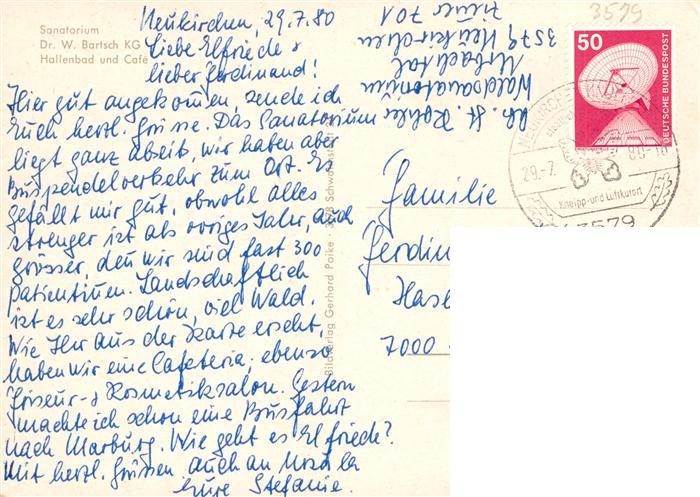 Sanatorium
Dr. W. Bartsch KG
Hallenbad und Café
Neukirchen, 29.7.80
Liebe Elfriede &
lieber Ferdinand!
Hier gut angekommen, sende ich
Euch herzl. Grüsse. Das Sanatorium
liegt ganz abseit, wir haben aber
Buspendelverkehr zum Ort. Es
gefällt mir gut, obwohl alles
strenger ist als voriges Jahr, auch
grösser, den wir sind fast 300
Patientinnen. Landschaftlich
ist es sehr schön, viel Wald.
Wie Ihr aus der Karte erseht,
haben wir eine Cafeteria, ebenso
Friseur- & Kosmetiksalon. Gestern
machte ich schon eine Busfahrt
nach Marburg. Wie geht es Elfriede?
Mit herzl. Grüssen auch an
Eure Stefanie.
Abs. St. Köhler
Waldsanatorium
Urbachtal
3579 Neukirchen
Zimmer 701
Bildverlag Gerhard Poike · 3578 Schwalmstadt
3579
50
DEUTSCHE BUNDESPOST
29.-7. 80-18
Kneipp- und Luftkurort
3579
Familie
Ferdin
Has
7000